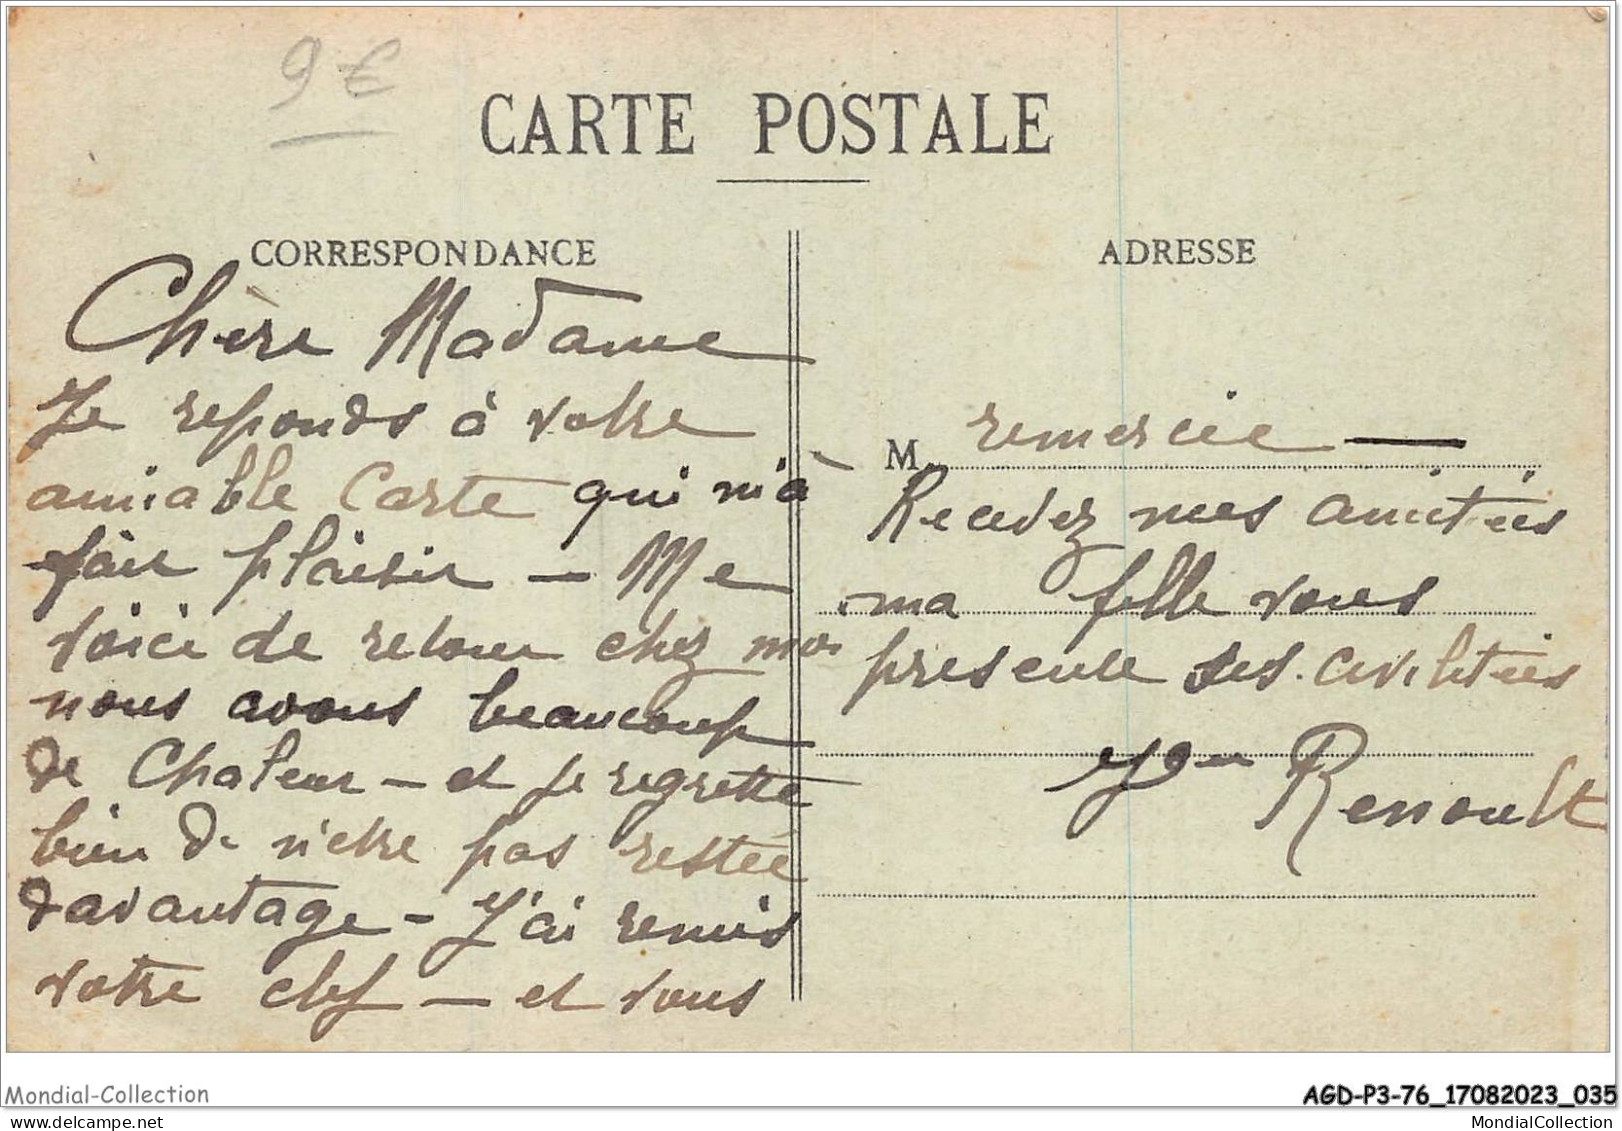 9 €
CARTE POSTALE
CORRESPONDANCE
ADRESSE
Chère Madame
Je reponds à votre
amiable Carte qui m'à
fair plàisir – Me
voici de retour chez moi
nous avons beaucoup
de Chaleur – et je regrette
bien de n'etre pas restée
davantage – J'ai remis
votre clef – et vous
M remercie —
Recevez mes amitiés
ma fille vous
presente ses civilitées
Renoult
Mondial-Collection
AGD-P3-76_17082023_035
Mondial-Collection.com
MondialCollection